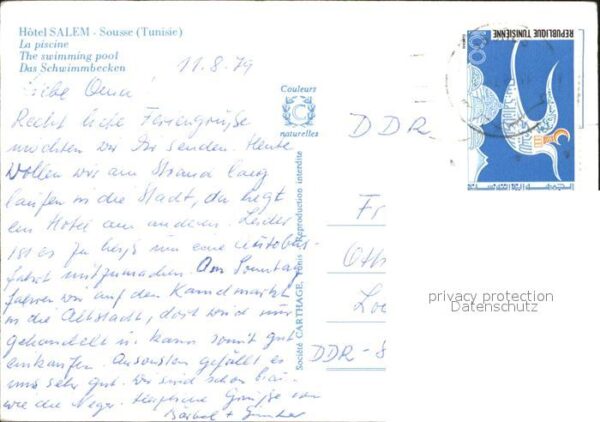 Hôtel SALEM - Sousse (Tunisie)
La piscine
The swimming pool
Das Schwimmbecken
11.8.79
Liebe Oma!
Recht liebe Feriengrüße
möchten wir Dir senden. Heute
wollen wir am Strand lang
laufen in die Stadt, da liegt
ein Hotel am anderen. Leider
ist es zu heiß um eine Autobus-
fahrt mitzumachen. Am Sonntag
fahren wir auf den Kamelmarkt
in die Altstadt, dort wird nur
gehandelt u. kann somit gut
einkaufen. Ansonsten gefällt es
uns sehr gut. Wir sind schon braun
wie die Neger. Herzliche Grüße von
Bärbel + Günther
Couleurs
C
naturelles
Société CARTHAGE, Tunis Reproduction interdite
DDR
Fr
Oth
DDR-8
REPUBLIQUE TUNISIENNE
100
privacy protection
Datenschutz